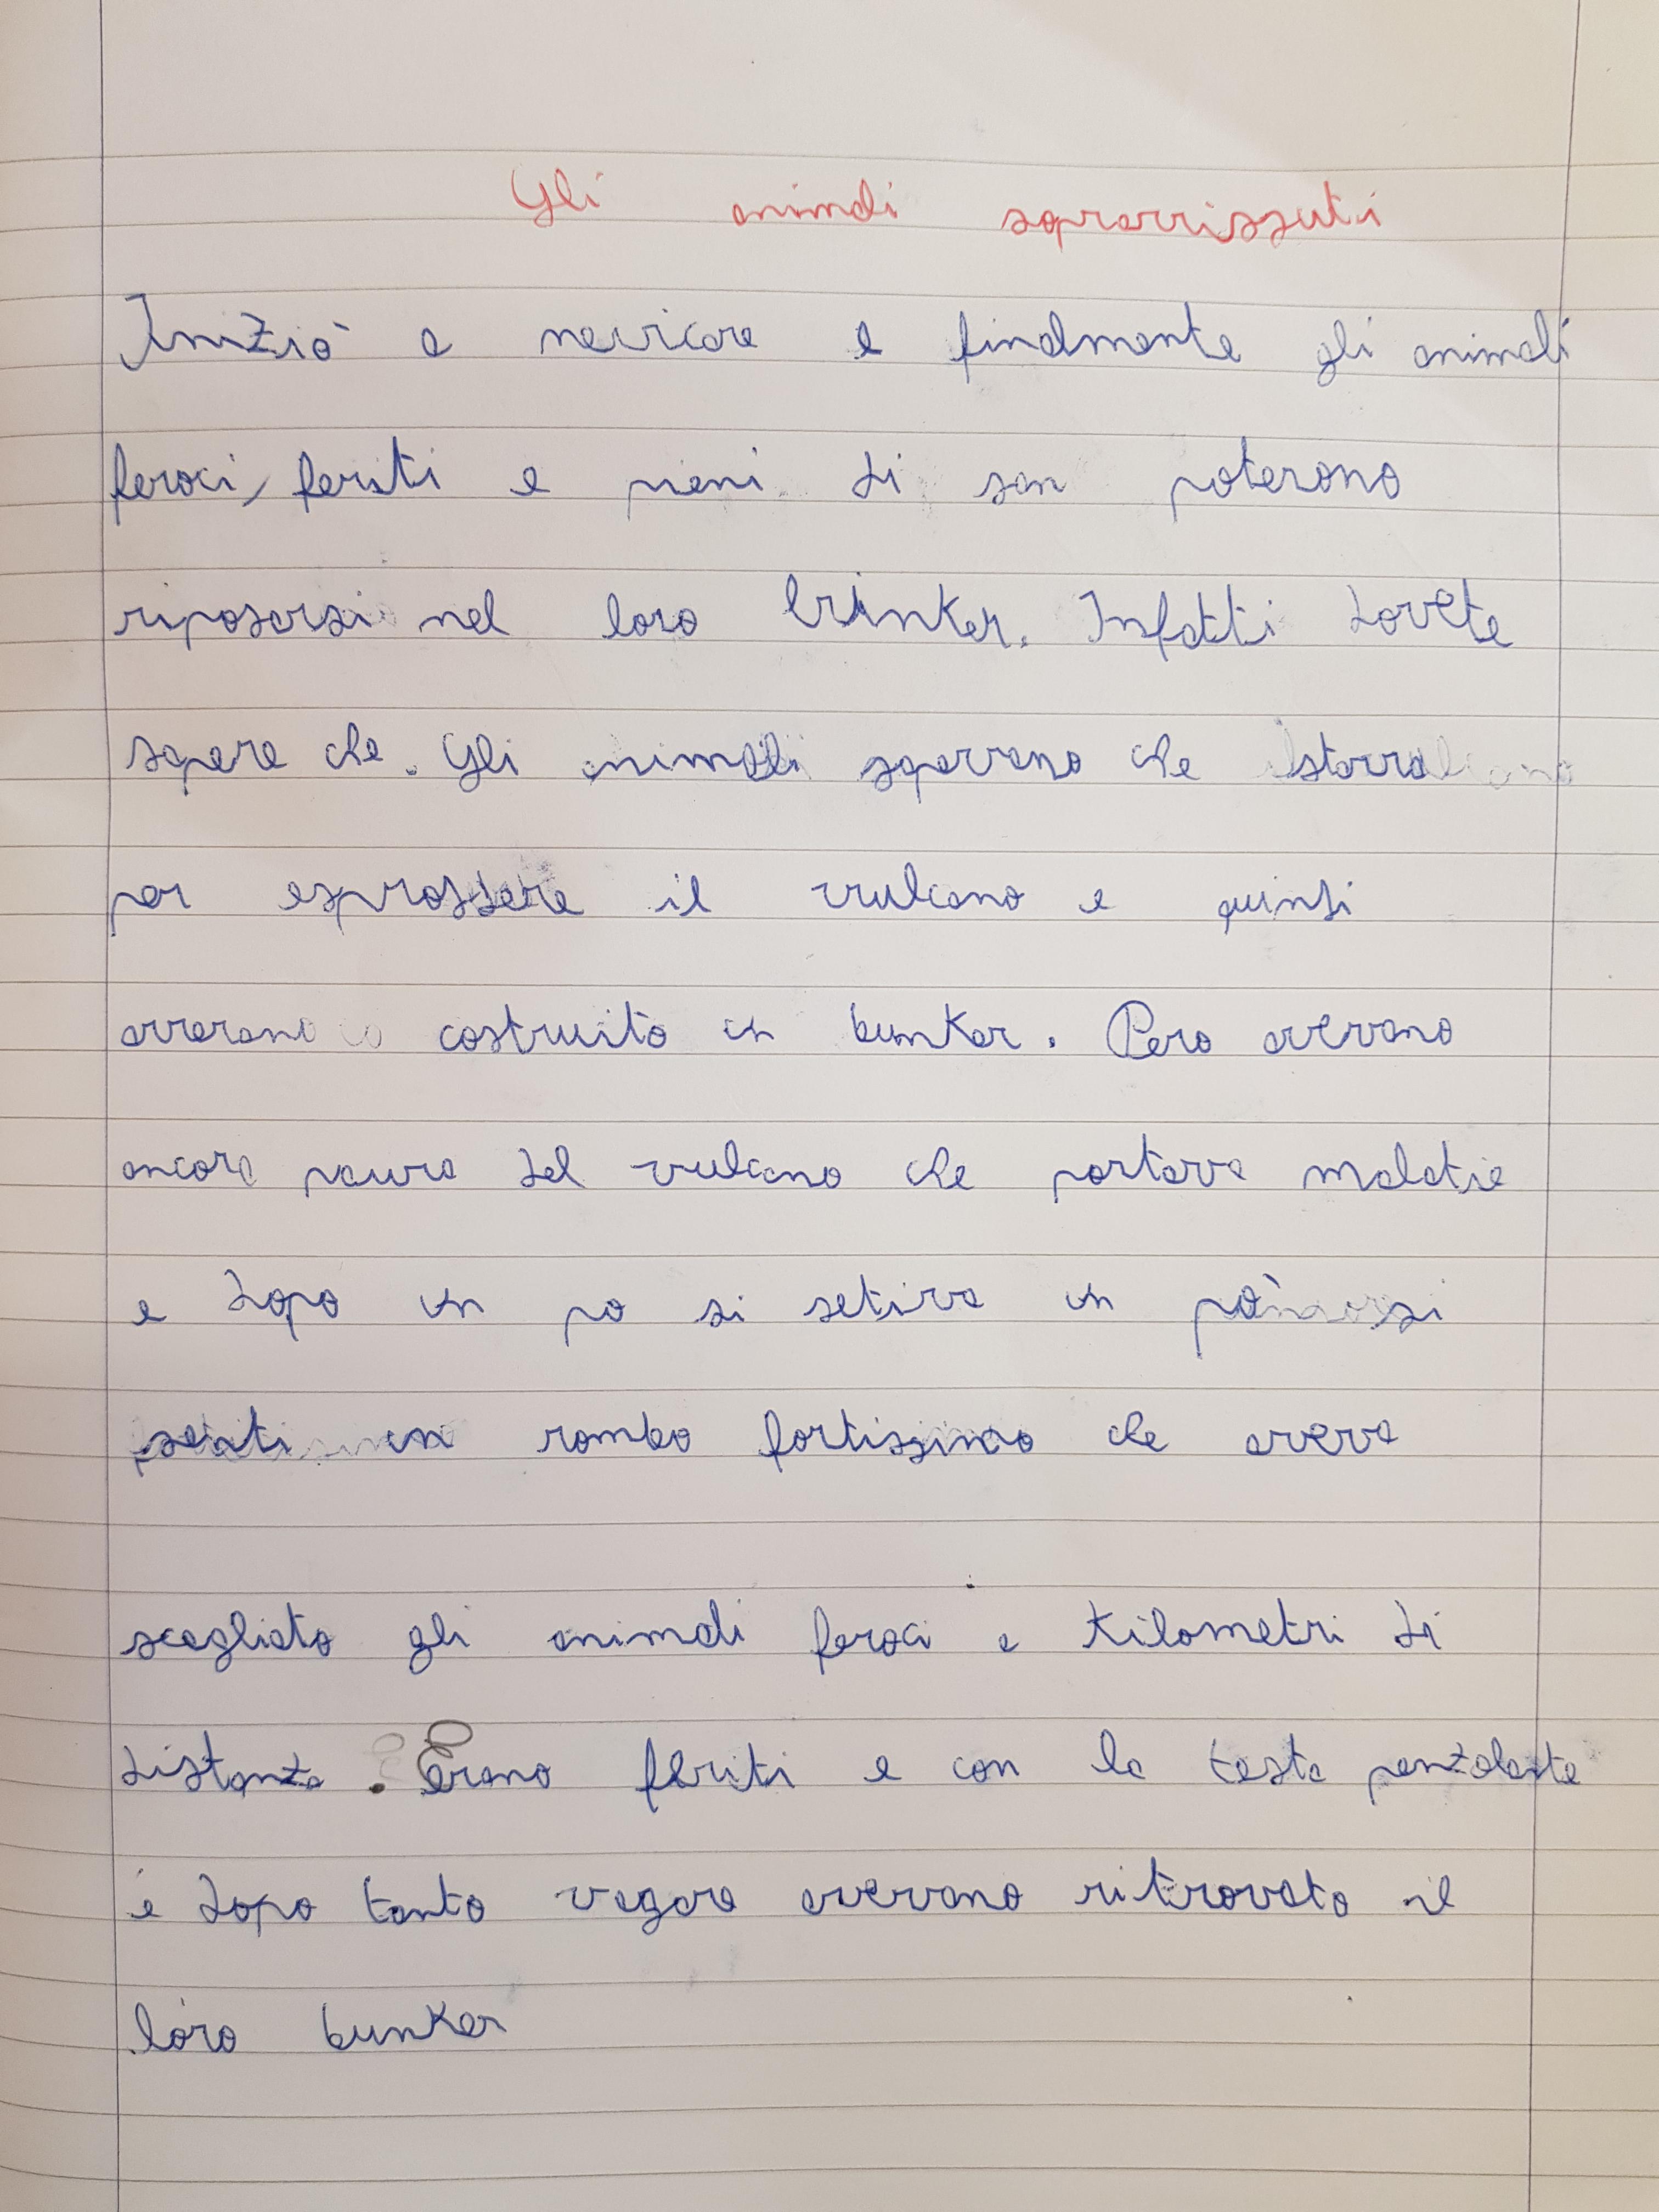 Gli animali sopravvissuti
Iniziò a nevicare e finalmente gli animali
feroci, feriti e pieni di son poterono
riposarsi nel loro brunker. Infatti dovete
sapere che. Gli animali sapevano che stava
per esprossere il vulcano e quindi
avevano costruito un bunker. Pero avevano
ancora paura del vulcano che portava malatie
e dopo un po si setiva un po si
senti un rombo fortissimo che aveva
scagliato gli animali feroci a Kilometri di
distanza. Erano feriti e con la testa penzolante
e dopo tanto vagare avevano ritrovato il
loro bunker